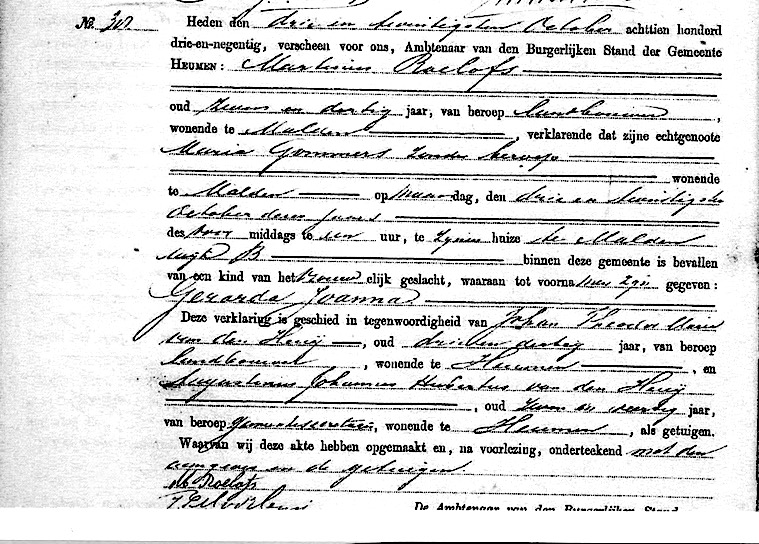 Heden den drie en twintigsten October achttien honderd
No. 307. drie-en-negentig, verscheen voor ons, Ambtenaar van den Burgerlijken Stand der Gemeente
HEUMEN: Martinus Roelofs
oud zeven en dertig jaar, van beroep landbouwer,
wonende te Malden, verklarende dat zijne echtgenoote
Maria Gommers zonder beroep
wonende
te Malden op maandag, den drie en twintigsten
October dezes jaars
des voor middags te een uur, te zijnen huize te Malden
wijk B binnen deze gemeente is bevallen
van een kind van het vrouw elijk geslacht, waaraan tot voorna men zijn gegeven:
Gerarda Joanna
Deze verklaring is geschied in tegenwoordigheid van Johan Theodor Marie
van den Heuij, oud drie en dertig jaar, van beroep
landbouwer, wonende te Heumen, en
Augustinus Johannes Hubertus van den Heuij
, oud zeven en veertig jaar,
van beroep gemeentesecretaris, wonende te Heumen, als getuigen.
Waarvan wij deze akte hebben opgemaakt en, na voorlezing, onderteekend met den
aangever en de getuigen.
M Roelofs
De Ambtenaar van den Burgerlijken Stand